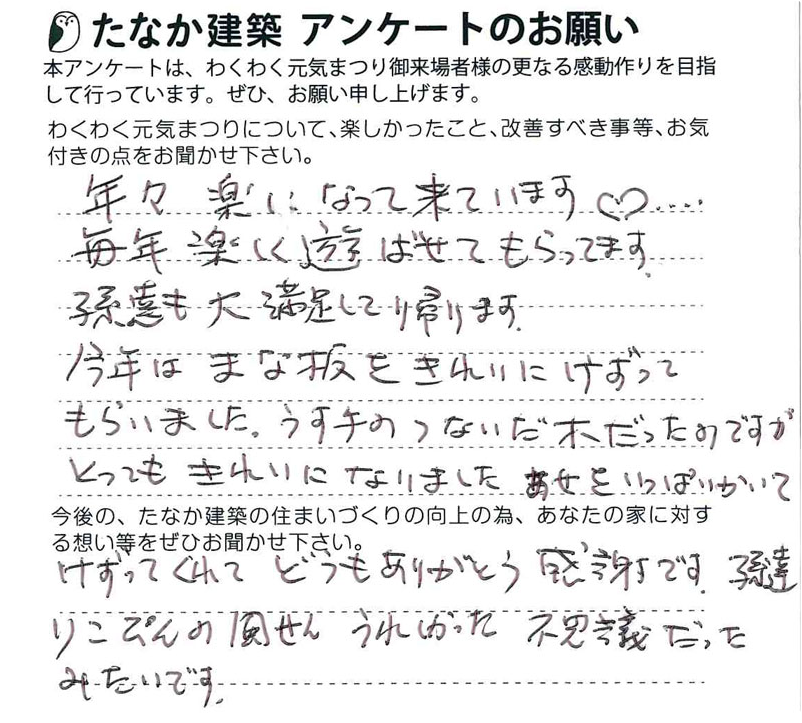 たなか建築 アンケートのお願い
本アンケートは、わくわく元気まつり御来場者様の更なる感動作りを目指
して行っています。ぜひ、お願い申し上げます。
わくわく元気まつりについて、楽しかったこと、改善すべき事等、お気
付きの点をお聞かせ下さい。
年々 楽しになって来ています♡....
毎年 楽しく遊ばせてもらってます。
孫達も 大満足して帰ります。
今年は まな板をきれいにけずって
もらいました。うす手のつないだ木だったのですが
とっても きれいになりました あせをいっぱいかいて
今後の、たなか建築の住まいづくりの向上の為、あなたの家に対す
る想い等をぜひお聞かせ下さい。
けずってくれて どうもありがとう 感謝です。孫達
りこぷんの風せん うれしかった 不思議だった
みたいです。